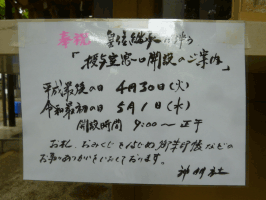 奉祝 皇位継承に伴う
「授与室窓口開設のご案内」
平成最後の日 4月30日(火)
令和最初の日 5月1日(水)
開設時間 9:00〜正午
お札、おみくじをはじめ御朱印帳などの
お取りあつかいをいたしております。
神明社